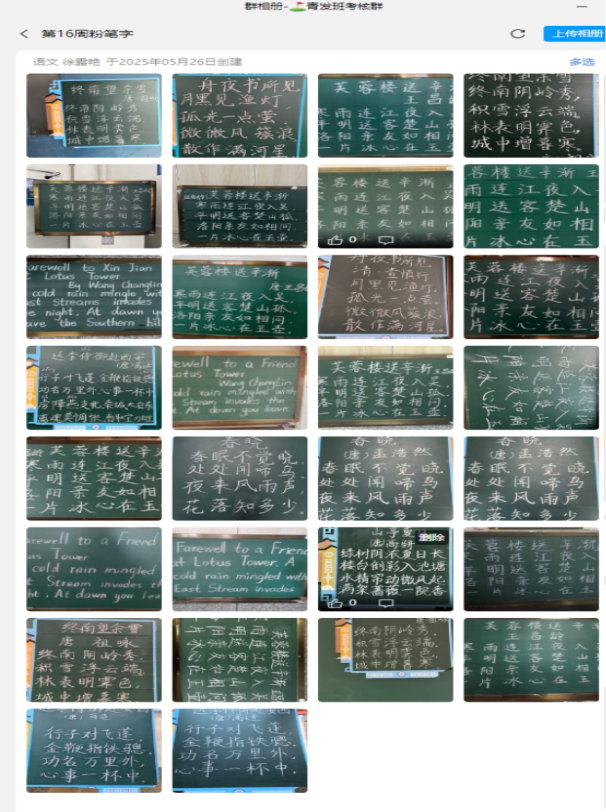 群相册-青发班考核群
第16周粉笔字
上传相册
语文 徐露艳 于2025年05月26日创建
多选
终南望余雪
终南阴岭秀,
积雪浮云端,
林表明霁色,
城中增暮寒
舟夜书所见
月黑见渔灯,
孤光一点萤
微微风簇浪
散作满河星
芙蓉楼送辛
王昌
寒雨连江夜入
平明送客楚山
洛阳亲友如相
一片冰心在玉
终南望余雪
终南阴岭秀,
积雪浮云端,
林表明霁色,
城中增暮寒.
芙蓉楼送辛渐
寒雨连江夜入吴
平明送客楚山孤
洛阳亲友如相问
一片冰心在玉壶
芙蓉楼送辛渐
寒雨连江夜入吴,
平明送客楚山孤
洛阳亲友如相问,
一片冰心在玉壶.
蓉楼送辛渐
雨连江夜入
明送客楚山
阳亲友如相
片冰心在玉
0
蓉楼送辛渐 王
雨连江夜入
明送客楚山
阳亲友如相
片冰心在玉
arewell to Xin Jian
Lotus Tower
By Wang Changlin
cold rain mingle wit
st Streams invades
e night, At dawn y
ave the Southern hil
芙蓉楼送辛渐
唐王昌
寒雨连江夜入吴
平明送客楚山孤
洛阳亲友如相问,
一片冰心在玉壶
舟夜书所见
清 查慎行
月黑见渔灯,
孤光一点萤
微微风簇浪
散作满河星
芙蓉楼送辛渐
寒雨连江夜入
平明送客楚山
洛阳亲友如相
一片冰心在玉
送李侍御赴安西
行子对飞蓬 金鞭指铁骢
功名万里外 心事一杯中
ewell to a Friend
Lotus Tower
Wang Changlin
old rain mingled with
Stream invades the
t. At dawn you leave
芙蓉楼送辛渐
寒雨连江夜入吴
平明送客楚山孤
洛阳亲友如相问
一片冰心在玉壶
芙蓉楼送辛
寒雨连江夜入
平明送客楚山
洛阳亲友如相
一片冰心在玉
春晓
春眠不觉晓
处处闻啼鸟
夜来风雨声
花落知多少
春晓
(唐)孟浩然
春眠不觉晓
处处闻啼鸟
夜来风雨声
花落知多少
春晓
(唐)孟浩然
春眠不觉晓
处处闻啼鸟
夜来风雨声
花落知多少
arewell to a Friend
us Tower
cold rain mingled
t Stream invades th
ht, At dawn you lea
Farewell to a Frien
at Lotus Tower. A
cold rain mingled with
East Stream invades
删除
山亭夏日
(唐)高骈
绿树阴浓夏日长
楼台倒影入池塘
水精帘动微风起
满架蔷薇一院香
0
蓉楼送
雨连江夜入
明送客楚山
阳亲友如相
片冰心在玉
终南望余雪
唐 祖咏
终南阴岭秀,
积雪浮云端,
林表明霁色,
城中增暮寒
终南阴岭秀,
积雪浮云端,
林表明霁色
城中增暮寒
芙蓉楼送辛
王昌龄
雨连江夜入
明送客楚山
阳亲友如相
片冰心在玉
行子对飞蓬
金鞭指铁骢.
功名万里外,
心事一杯中.
行子对飞蓬
金鞭指铁骢,
功名万里外,
心事一杯中.